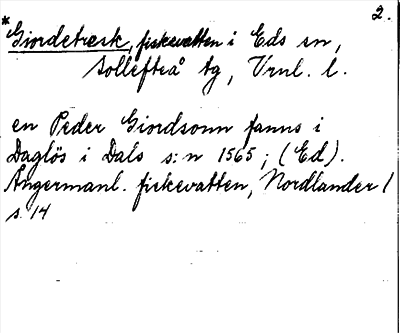 2.
*Giordetræsk, fiskevatten i Eds sn,
Sollefteå tg, Vrnl. l.
en Peder Giordsonn fanns i
Daglös i Dals s:n 1565; (Ed).
Ångermanl. fiskevatten, Nordlander 1
s. 14